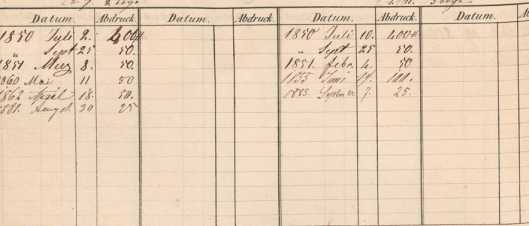 Datum. Abdruck. Datum. Abdruck. Datum. Abdruck. Datum.
1850 Juli 2. 400 1850 Juli 10. 400
" Sept 25 50. " Sept 25 50.
1851 8. 50. 1851 febr. 4. 50
1860 Mai 11 50 1855 Juni 100.
1862 April 18. 50. 1885. September 7. 25.
Augst 25